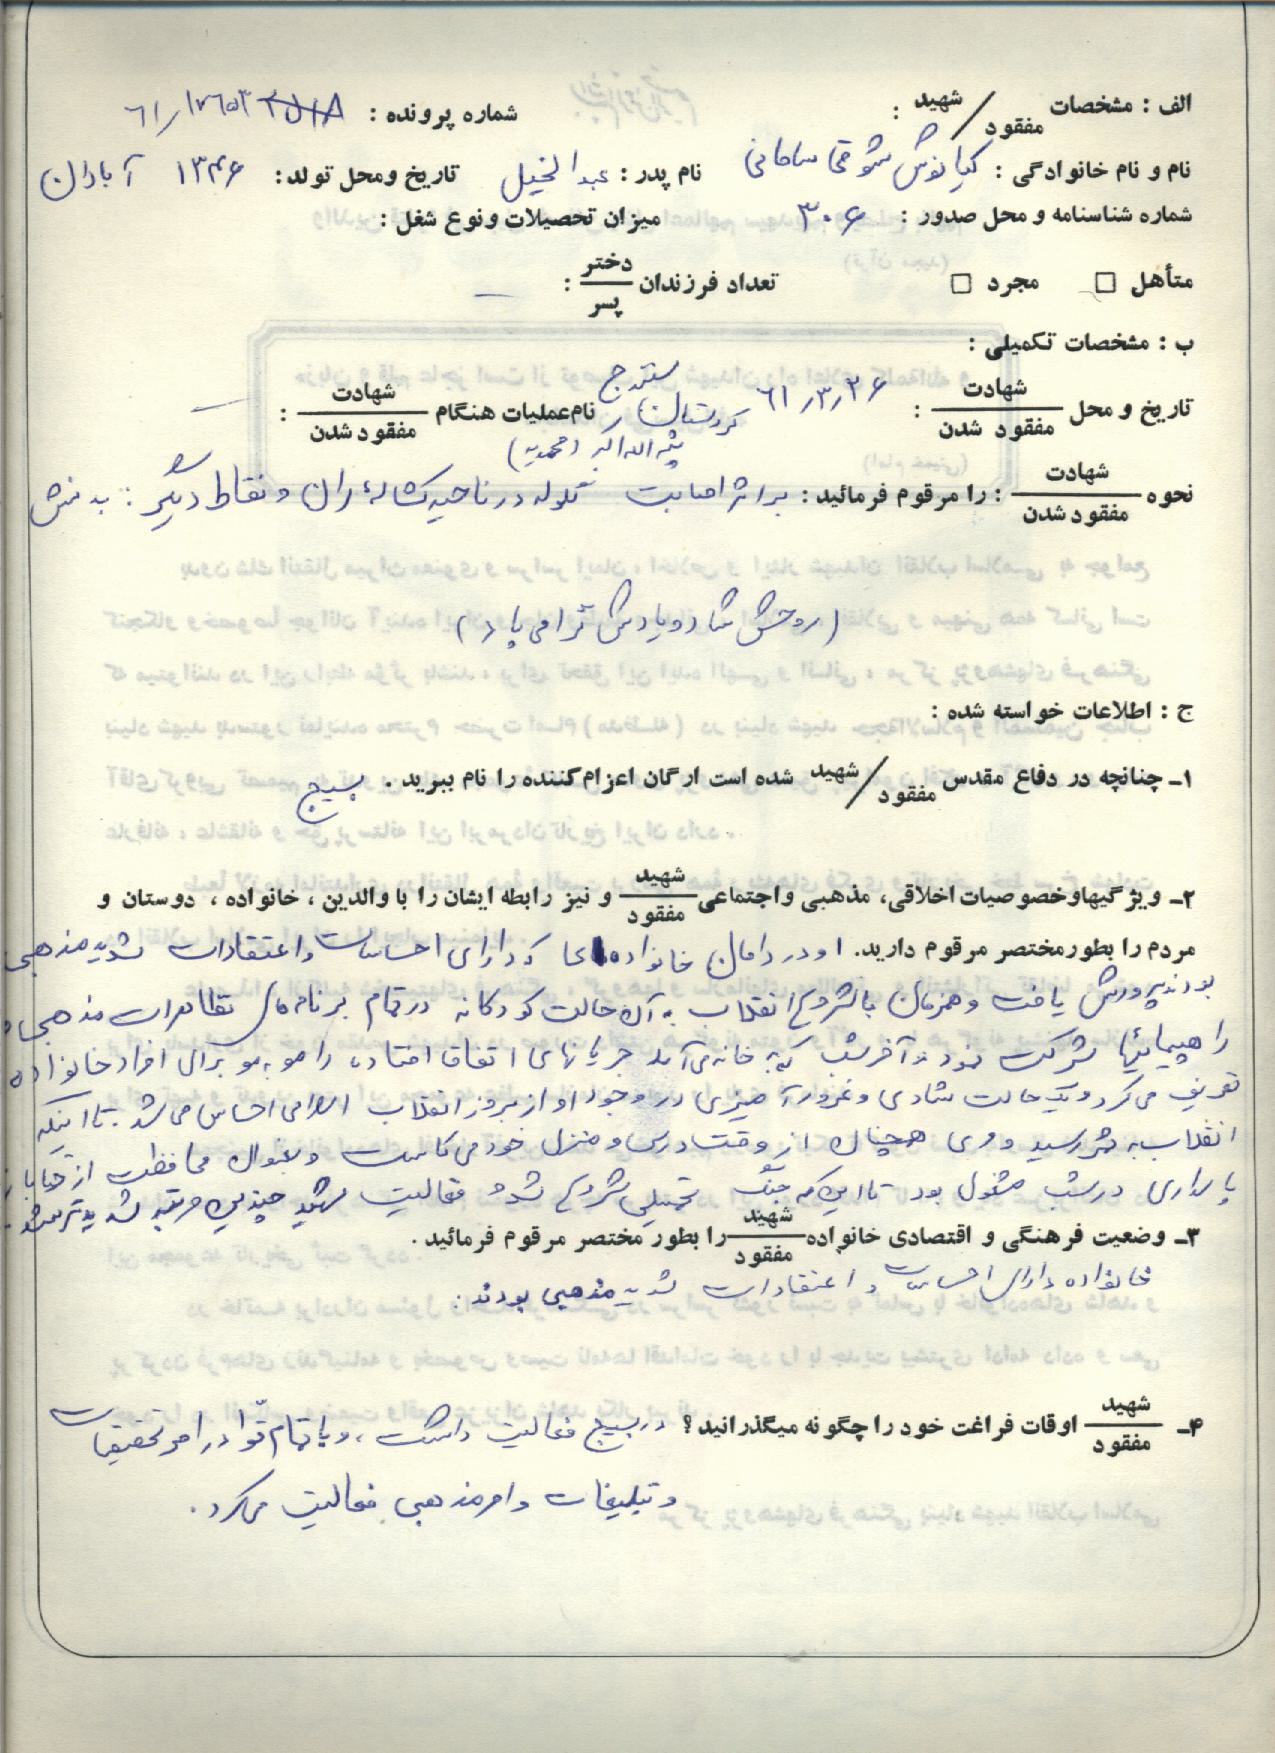 الف : مشخصات شهید / مفقود : شماره پرونده : ۶۱/۱۲۶۵۳
نام و نام خانوادگی : کیانوش شوقی سامانی نام پدر : عبدالخیل تاریخ ومحل تولد : ۱۳۴۶ آبادان
شماره شناسنامه و محل صدور : ۳۰۶ میزان تحصیلات ونوع شغل :
متأهل □ مجرد □ تعداد فرزندان دختر / پسر : —
ب : مشخصات تکمیلی :
تاریخ و محل شهادت / مفقود شدن : ۶۱/۳/۲۶ سنندج کردستان تپه الله اکبر (محمدیه) نام عملیات هنگام شهادت / مفقود شدن : —
نحوه شهادت / مفقود شدن : را مرقوم فرمائید : براثر اصابت گلوله در ناحیه کشاله ران و نقاط دیگر بدنش
(روحش شاد و یادش گرامی باد)
ج : اطلاعات خواسته شده :
۱ـ چنانچه در دفاع مقدس شهید / مفقود شده است ارگان اعزام کننده را نام ببرید . بسیج
۲ـ ویژگیهاوخصوصیات اخلاقی، مذهبی واجتماعی شهید / مفقود و نیز رابطه ایشان را با والدین ، خانواده ، دوستان و
مردم را بطور مختصر مرقوم دارید. او در دامان خانواده که دارای احساسات و اعتقادات شدید مذهبی
بودند پرورش یافت و همزمان با شروع انقلاب به آن حالت کودکانه در تمام برنامه های تظاهرات مذهبی و
راهپیمائیها شرکت نمود و آخر شب که به خانه می آمد جریانهای اتفاق افتاده را مو به مو برای افراد خانواده
تعریف می کرد و یک حالت شادی و غرور آمیزی در وجود او از بروز انقلاب اسلامی احساس می شد. تا اینکه
انقلاب به ثمر رسید و وی همچنان از وقت درس و منزل خود می کاست و بعنوان محافظت از
پاسداری در شب مشغول بود تا این که جنگ تحمیلی شروع شد و فعالیت شهید چندین مرتبه شدیدتر شد.
۳ـ وضعیت فرهنگی و اقتصادی خانواده شهید / مفقود را بطور مختصر مرقوم فرمائید .
خانواده دارای احساسات و اعتقادات شدید مذهبی بودند.
۴ـ شهید / مفقود اوقات فراغت خود را چگونه میگذرانید ؟ در بسیج فعالیت داشت ، و با تمام قوا در امر تحقیقات
و تبلیغات و امر مذهبی فعالیت می کرد.